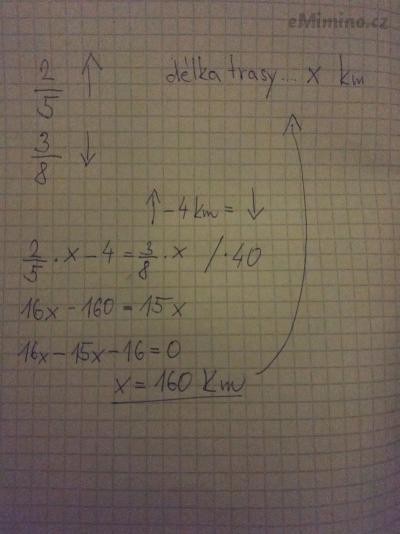 eMimino.cz
2/5 ↑ délka trasy... x km
3/8 ↓
↑ - 4 km = ↓
2/5 · x - 4 = 3/8 · x / · 40
16x - 160 = 15x
16x - 15x - 16 = 0
x = 160 km